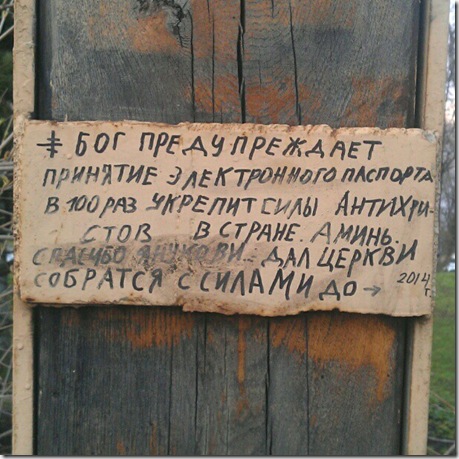 БОГ ПРЕДУПРЕЖДАЕТ
ПРИНЯТИЕ ЭЛЕКТРОННОГО ПАСПОРТА
В 100 РАЗ УКРЕПИТ СИЛЫ АНТИХРИ-
СТОВ В СТРАНЕ. АМИНЬ.
СПАСИБО ДАЛ ЦЕРКВИ
СОБРАТСЯ С СИЛАМИ ДО → 2014 г.